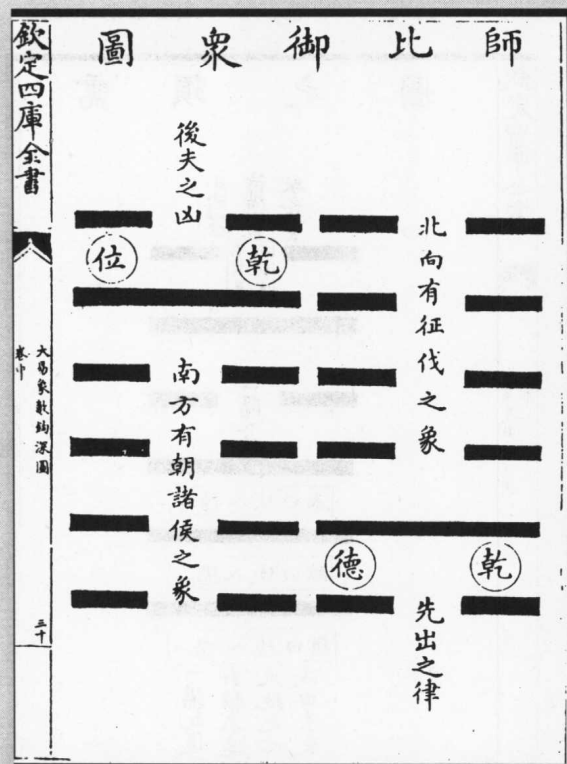 師比御衆圖
北向有征伐之象
乾德
先出之律
後夫之凶
乾位
南方有朝諸侯之象
欽定四庫全書
大易象數鈎深圖
卷中
三十